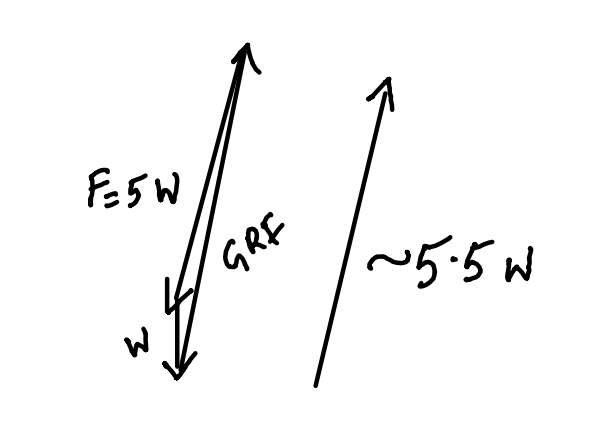 F=5W
GRF
W
~5.5W